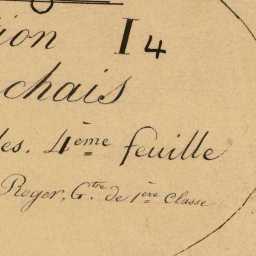 tion I4
chais
les. 4ème feuille
Royer, Gtre de 1ère Classe